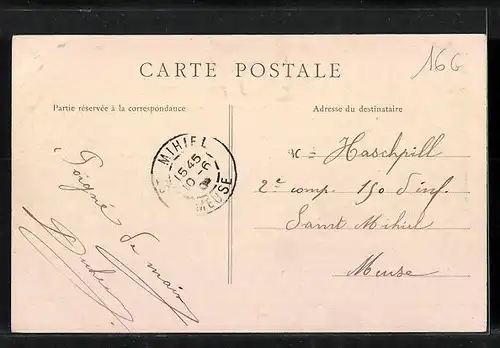 16G
CARTE POSTALE
Partie réservée à la correspondance
Adresse du destinataire
Poigné de main
ST MIHIEL
15 45
10 - 6
MEUSE
Haschpill
2e comp. 150 d'inf.
Saint Mihiel
Meuse